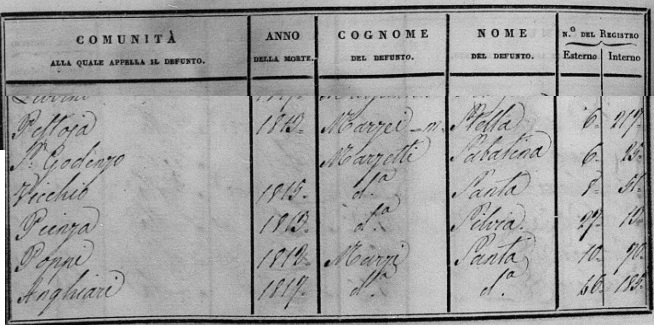 COMUNITÀ ANNO COGNOME NOME N.º DEL REGISTRO
ALLA QUALE APPELLA IL DEFUNTO. DELLA MORTE. DEL DEFUNTO. DEL DEFUNTO. Esterno Interno
Pistoja 1813. Marzei Stella 6. 217.
S. Godenzo Marzetti Sabatina 6. 25.
Vicchio 1815. d.ª Santa 8. 51.
Pienza 1813. d.ª Silvia. 27. 13.
Poppi 1812. Marzi Santa 10. 70.
Anghiari 1817. d.ª d.ª 60. 185.